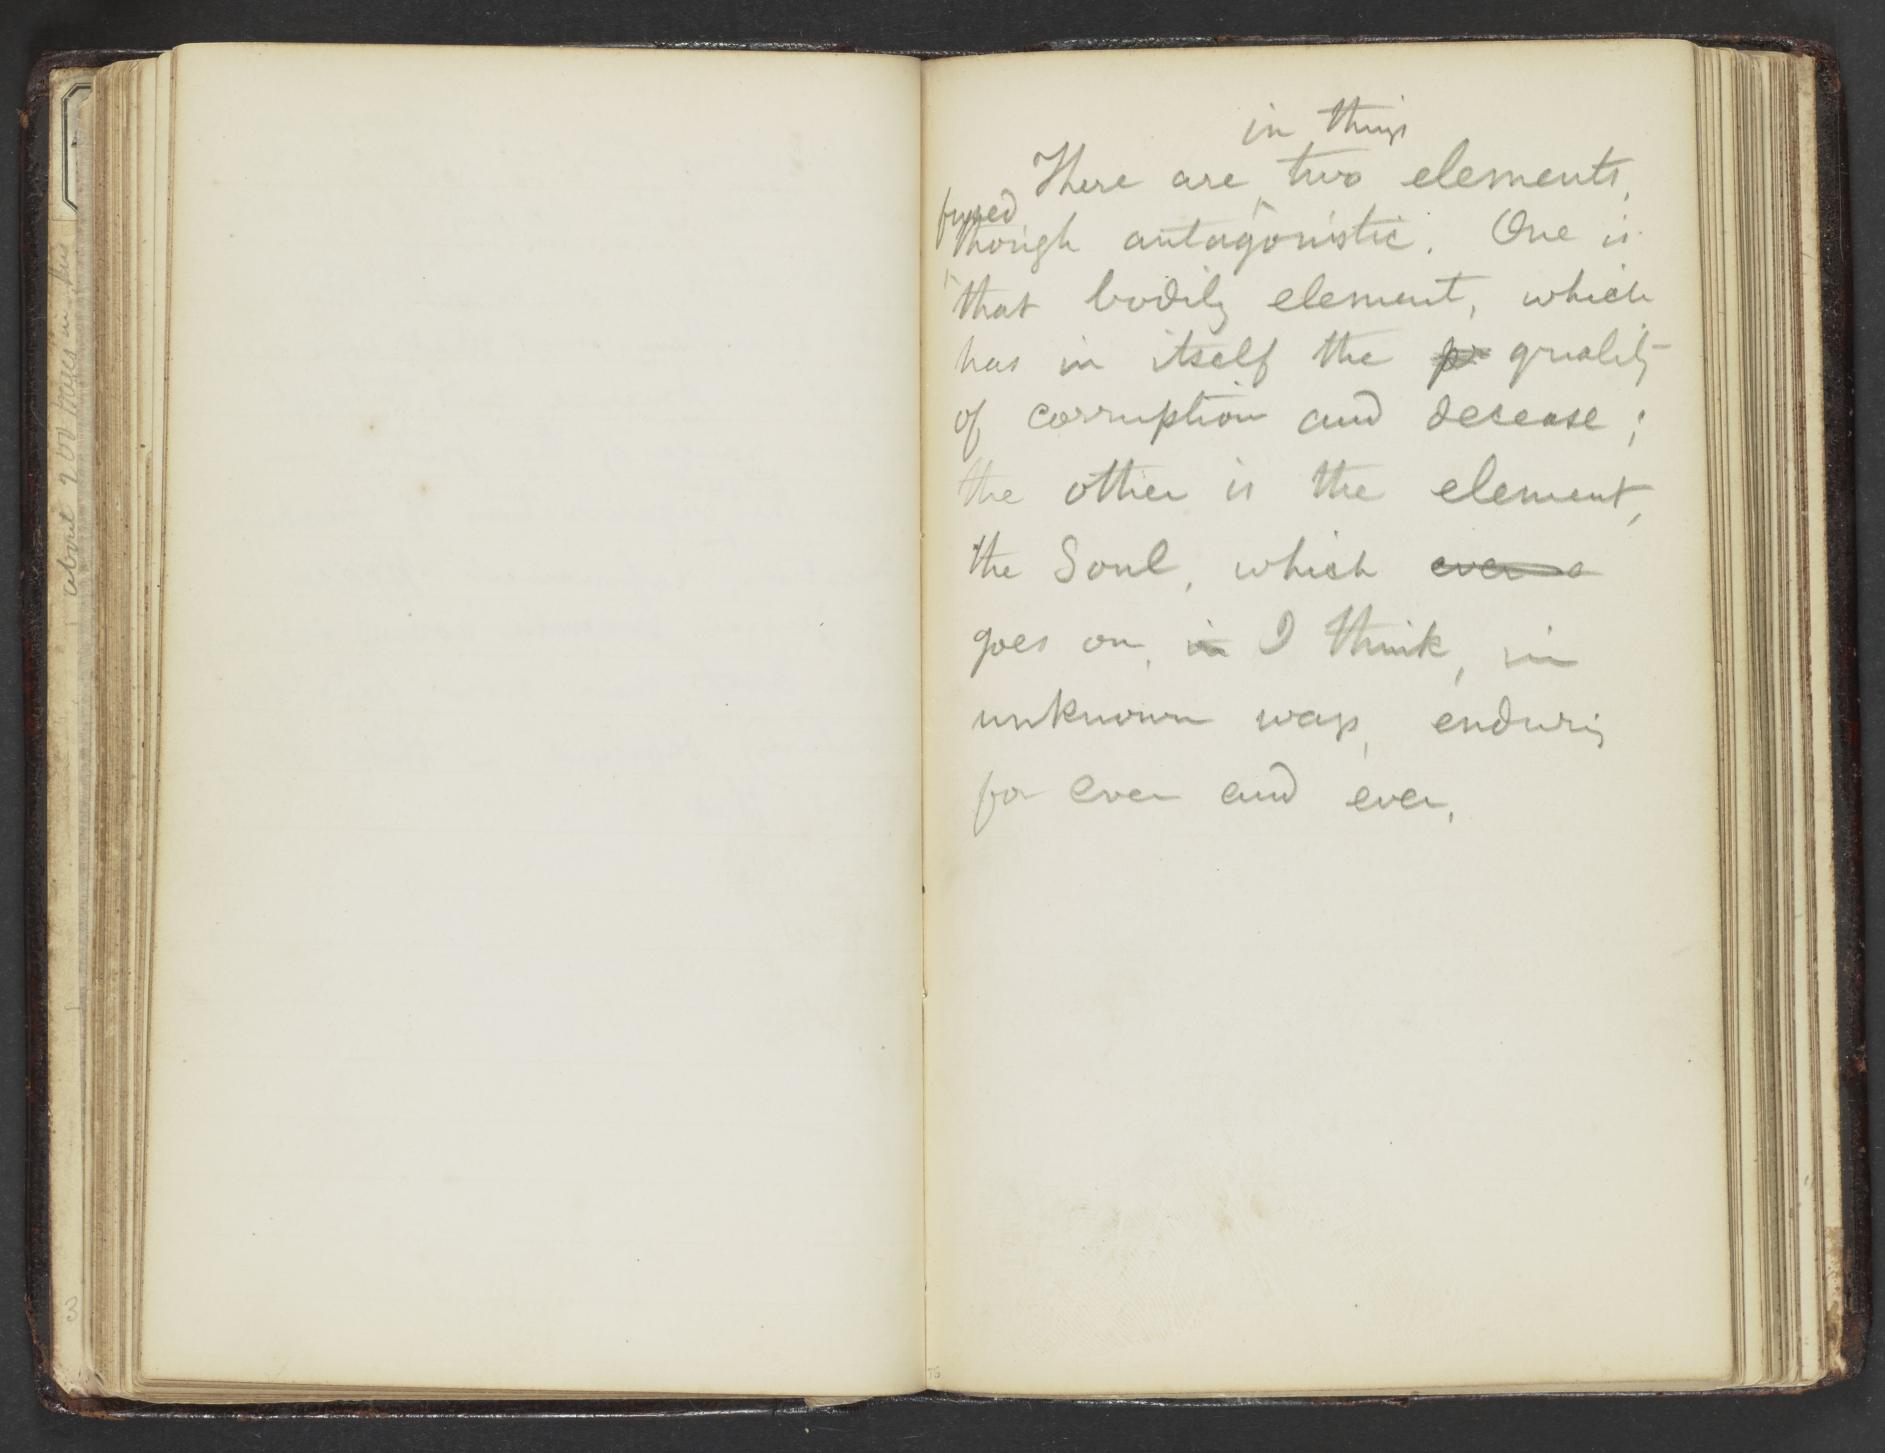 about 200 pages in this
3
in things
There are two elements,
fused
though antagonistic. One is
that bodily element, which
has in itself the quality
of corruption and decease;
the other is the element,
the Soul, which ever
goes on, in I think, in
unknown ways, enduring
for ever and ever.
75